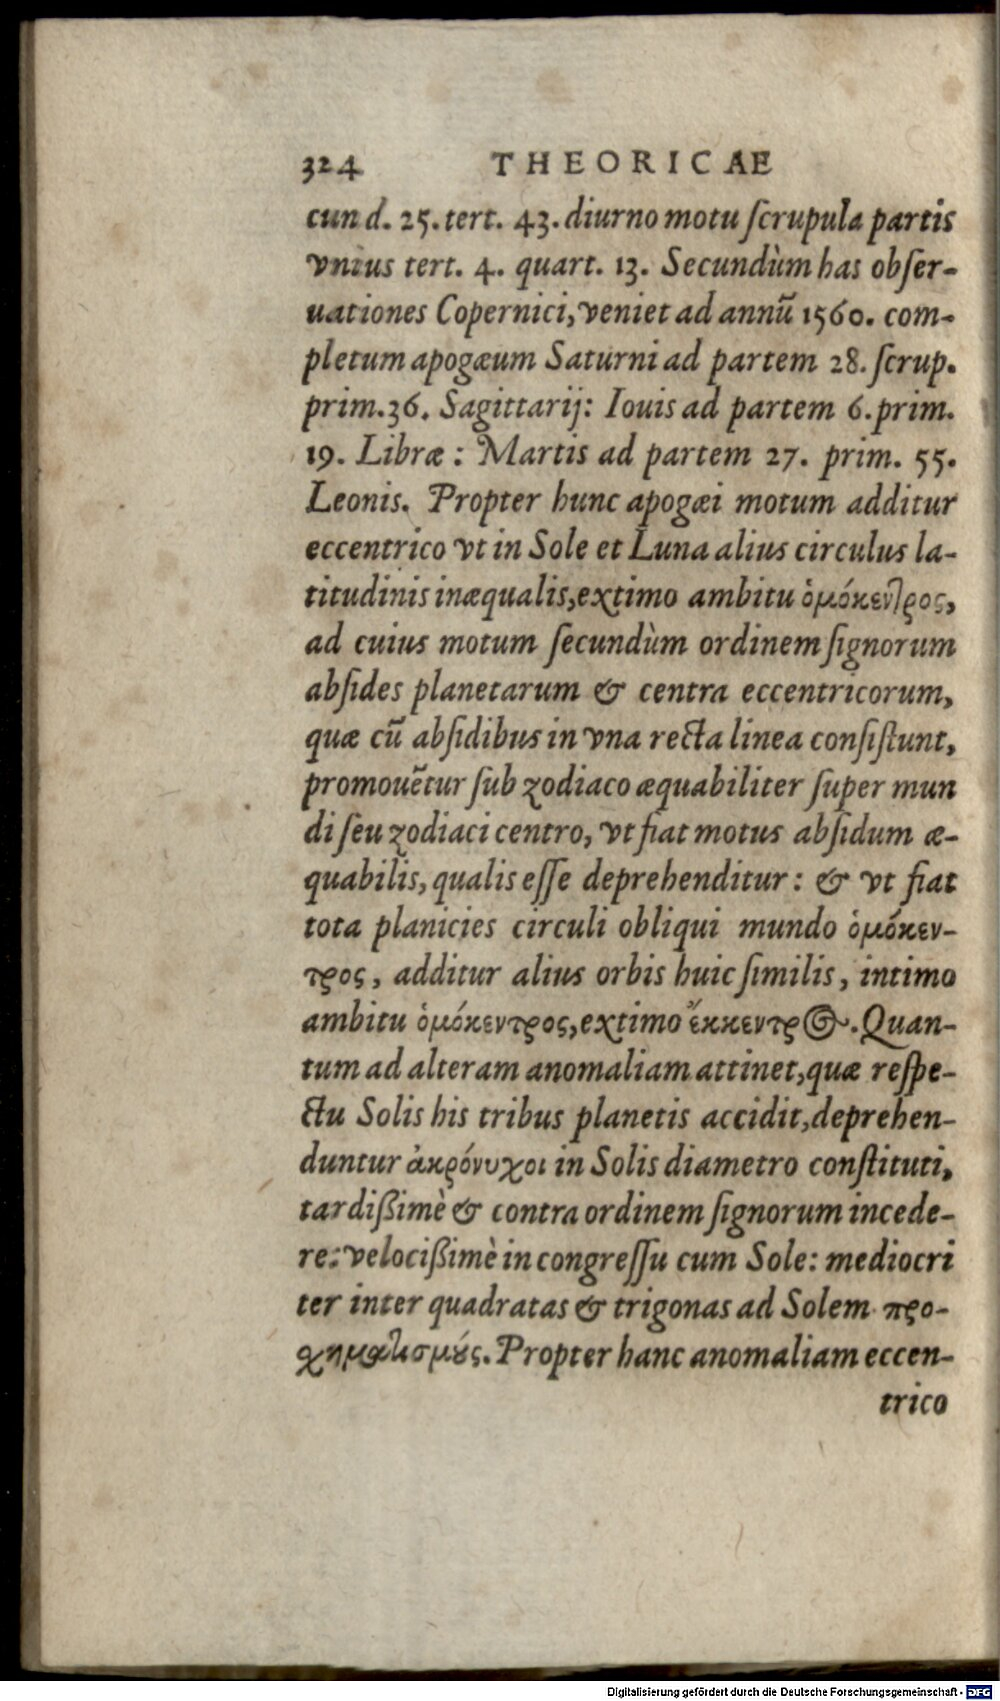 324 THEORICAE
cund. 25. tert. 43. diurno motu ſcrupula partis
vnius tert. 4. quart. 13. Secundùm has obſer-
uationes Copernici, veniet ad annū 1560. com-
pletum apogæum Saturni ad partem 28. ſcrup.
prim. 36. Sagittarij: Iouis ad partem 6. prim.
19. Libræ: Martis ad partem 27. prim. 55.
Leonis. Propter hunc apogæi motum additur
eccentrico vt in Sole et Luna alius circulus la-
titudinis inæqualis, extimo ambitu ὁμόκεντρος,
ad cuius motum ſecundùm ordinem ſignorum
abſides planetarum & centra eccentricorum,
quæ cū abſidibus in vna recta linea conſiſtunt,
promouētur ſub zodiaco æquabiliter ſuper mun
di ſeu zodiaci centro, vt fiat motus abſidum æ-
quabilis, qualis eſſe deprehenditur: & vt fiat
tota planicies circuli obliqui mundo ὁμόκεν-
τρος, additur alius orbis huic ſimilis, intimo
ambitu ὁμόκεντρος, extimo ἔκκεντρος. Quan-
tum ad alteram anomaliam attinet, quæ reſpe-
ctu Solis his tribus planetis accidit, deprehen-
duntur ἀκρόνυχοι in Solis diametro conſtituti,
tardißimè & contra ordinem ſignorum incede-
re: velocißimè in congreſſu cum Sole: mediocri
ter inter quadratas & trigonas ad Solem προ-
χηματισμούς. Propter hanc anomaliam eccen-
trico
Digitalisierung gefördert durch die Deutsche Forschungsgemeinschaft - DFG